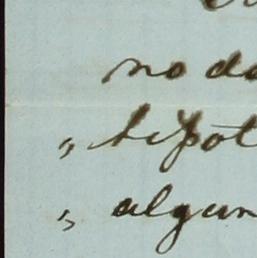 no do
„ hipot
„ algun